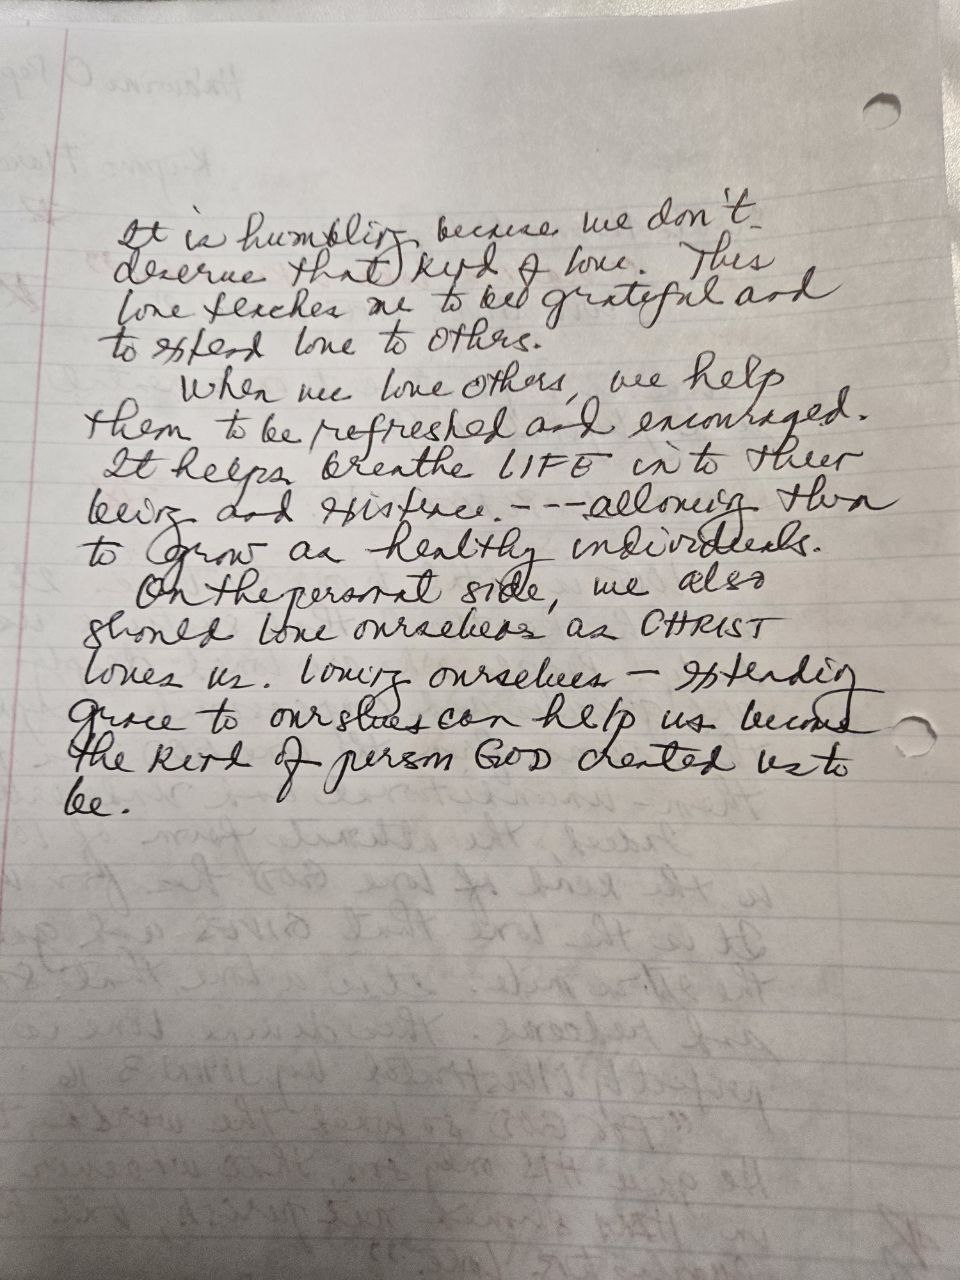 It is humbling because we don't
deserve that kind of love. This
love teaches me to be grateful and
to extend love to others.
When we love others, we help
them to be refreshed and encouraged.
It helps breathe LIFE into their
being and existence.---allowing them
to grow as healthy individuals.
On the personal side, we also
should love ourselves as CHRIST
loves us. Loving ourselves — extending
grace to ourselves can help us become
the kind of person GOD created us to
be.